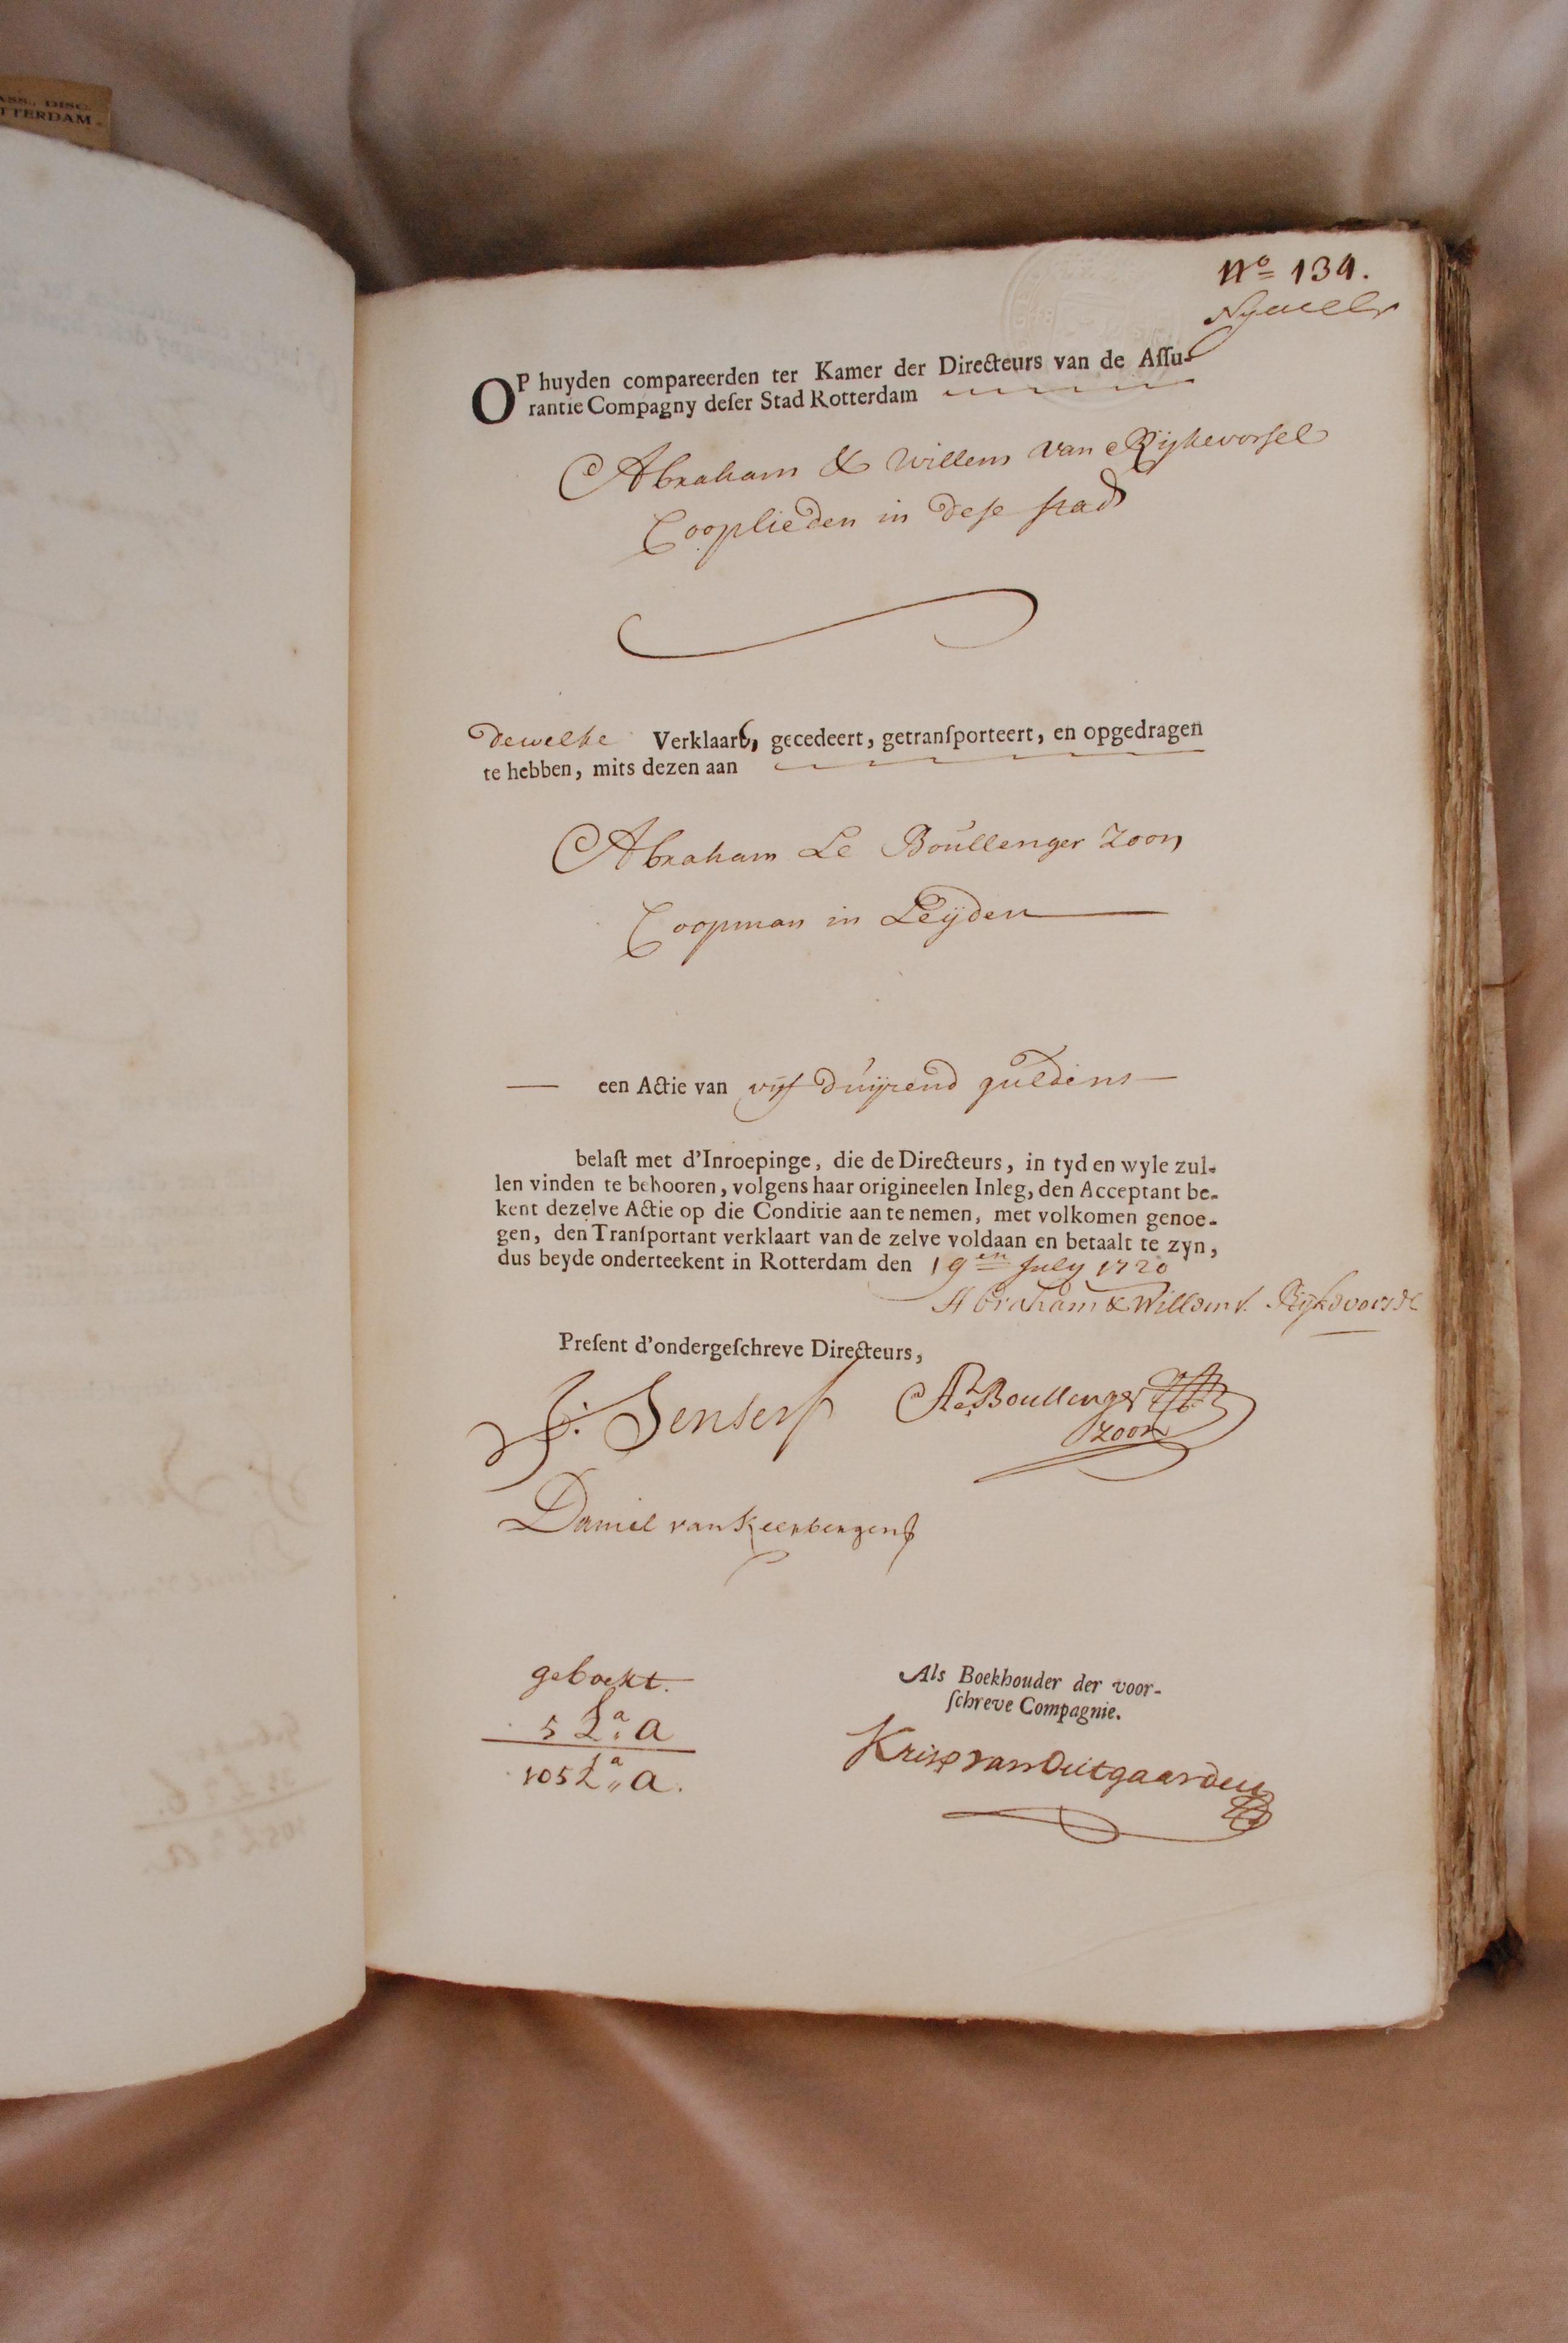 ASS., DISC.
TTERDAM
Nº 134.
OP huyden compareerden ter Kamer der Directeurs van de Aſſu-
rantie Compagny deſer Stad Rotterdam
Abraham & Willem van Rijkevorsel
Cooplieden in dese stad
dewelke Verklaart, gecedeert, getranſporteert, en opgedragen
te hebben, mits dezen aan
Abraham Le Boúllenger Zoon
Coopman in Leijden
een Actie van vijf duijzend guldens
belaſt met d'Inroepinge, die de Directeurs, in tyd en wyle zul-
len vinden te behooren, volgens haar origineelen Inleg, den Acceptant be-
kent dezelve Actie op die Conditie aan te nemen, met volkomen genoe-
gen, den Tranſportant verklaart van de zelve voldaan en betaalt te zyn,
dus beyde onderteekent in Rotterdam den 19en July 1720
Abraham & Willem v. Rijkevorsel
Preſent d'ondergeſchreve Directeurs,
Boullenger
zoon
Daniel van Keerbergen
geboekt.
5 La. a
105 La. a.
Als Boekhouder der voor-
ſchreve Compagnie.
Krisp van Outgaarden